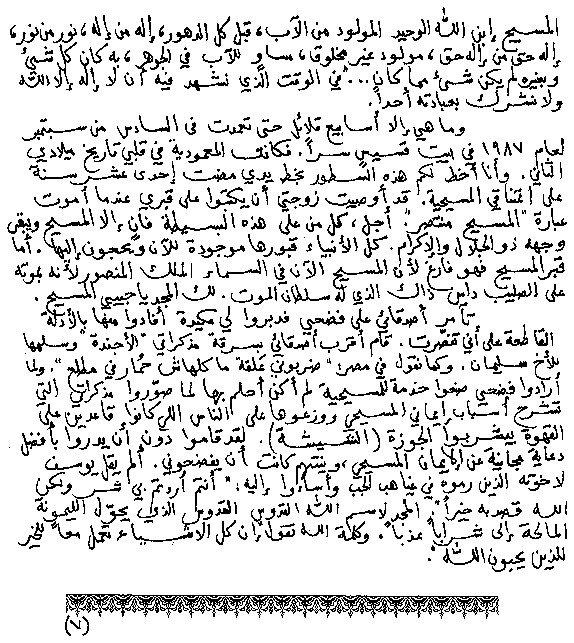 المسيح إبن الله الوحيد المولود من الآب، قبل كل الدهور، إله من إله، نور من نور،
إله حق من إله حق، مولود غير مخلوق، مساوٍ للآب في الجوهر، به كان كل شئ
وبغيره لم يكن شئ مما كان... في الوقت الذي نشهد فيه أن لا إله إلا الله
ولا نشرك بعبادته أحداً.
وما هي إلا أسابيع قلائل حتى تعمدت في السادس من سبتمبر
لعام ١٩٨٧ في بيت قسيس سراً. فكانت المعمودية في قلبي تاريخ ميلادي
الثاني. وأنا أخط لكم هذه السطور بخط يدي مضت إحدى عشر سنة
على إعتناقي المسيحية. قد أوصيت زوجتي أن يكتبوا على قبري عندما أموت
عبارة "المسيح منتصر" أجل، كل من على هذه البسيطة فانٍ إلا المسيح ويبقى
وجهه ذو الجلال والإكرام. كل الأنبياء قبورها موجودة للآن ويحجون إليها. أما
قبر المسيح فهو فارغ لأن المسيح الآن في السماء الملك المنصور لأنه بموته
على الصليب داس ذاك الذي له سلطان الموت. لك المجد يا حبيبي المسيح.
تآمر أصدقائي على فضحي فدبروا لي مكيدة أفادوا منها بالأدلة
القاطعة على أني تنصرت. قام أقرب أصدقائي بسرقة مذكراتي "الأجندة" وسلمها
للأخ سليمان. وكما نقول في مصر: "ضربوني علقة ما كلهاش حمار في مطلع". ولما
أرادوا فضحي صنعوا خدمة للمسيحية لم أكن أحلم بها لما صوّروا مذكراتي التي
تشرح أسباب إيماني المسيحي ووزعوها على الناس اللي كانوا قاعدين على
القهوة بيشربوا الجوزة (الشيشة). لقد قاموا دون أن يدروا بأفضل
دعاية مجانية عن الإيمان المسيحي، ونيتهم كانت أن يفضحوني. ألم يقل يوسف
لاخوته الذين رموه في غياهب الجب وأساءوا إليه: "أنتم أردتم بي شر ولكن
الله قصد به خيراً". المجد لاسم الله القدوس القدوس الذي يحوّل الليمونة
المالحة إلى شراباً عذباً. وكلمة الله تقول إن كل الأشياء تعمل معاً للخير
للذين يحبون الله".
(٧)